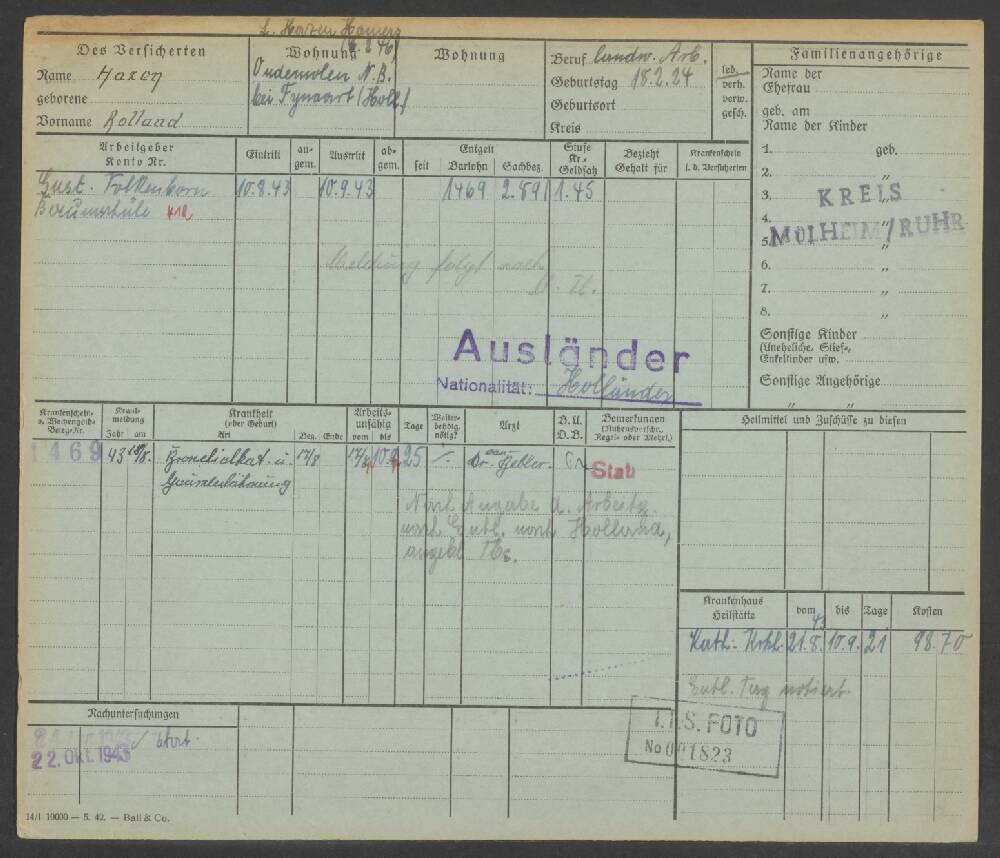 Des Versicherten
Name
geborene
Vorname Rolland
Wohnung
Oudemolen N.B.
bei Fynaart (Holl.)
Wohnung
Beruf landw. Arb.
Geburtstag 18.2.24
Geburtsort
Kreis
led.
verh.
verw.
gesch.
Familienangehörige
Name der
Ehefrau
geb. am
Name der Kinder
1. geb.
2. "
3. "
4. "
5. "
6. "
7. "
8. "
KREIS
MÜLHEIM/RUHR
Sonstige Kinder
(Uneheliche, Stief-,
Enkelkinder usw.
Sonstige Angehörige
" "
Arbeitgeber
Konto Nr.
Eintritt
an-
gem.
Austritt
ab-
gem.
Entgelt
seit Barlohn Sachbez.
Stufe
Kr.-
Geldsatz
Bezieht
Gehalt für
Krankenschein
f. d. Versicherten
Gust. 10.8.43 10.9.43 1469 2.89 1.45
Baumschule
Meldung folgt nach
Ausländer
Nationalität: Holländer
Krankenschein-
u. Wochengeld-
Beleg-Nr.
Krank-
meldung
Jahr am
Krankheit
(oder Geburt)
Art Beg. Ende
Arbeits-
unfähig
vom bis
Tage
Weiter-
behdlg.
nötig?
Arzt
B.U.
D.B.
Bemerkungen
(Ruhensvorschr.,
Regel- oder Mehrl.)
Heilmittel und Zuschüsse zu diesen
1469 43 18/8. Bronchialkat. u. 17/8 17/8 10.9. 25 Dr.
Stab
Nach Angabe d. Arbeitg.
nach Entl. nach Holland,
angebl. Tbc.
Krankenhaus
Heilstätte
vom bis Tage Kosten
43
Kath. Krkh. 21.8. 10.9. 21 98.70
Entl. Tag notiert.
Nachuntersuchungen
22. OKT. 1943
I.T.S. FOTO
No 001823
14/1 10000 — 5. 42. — Ball & Co.